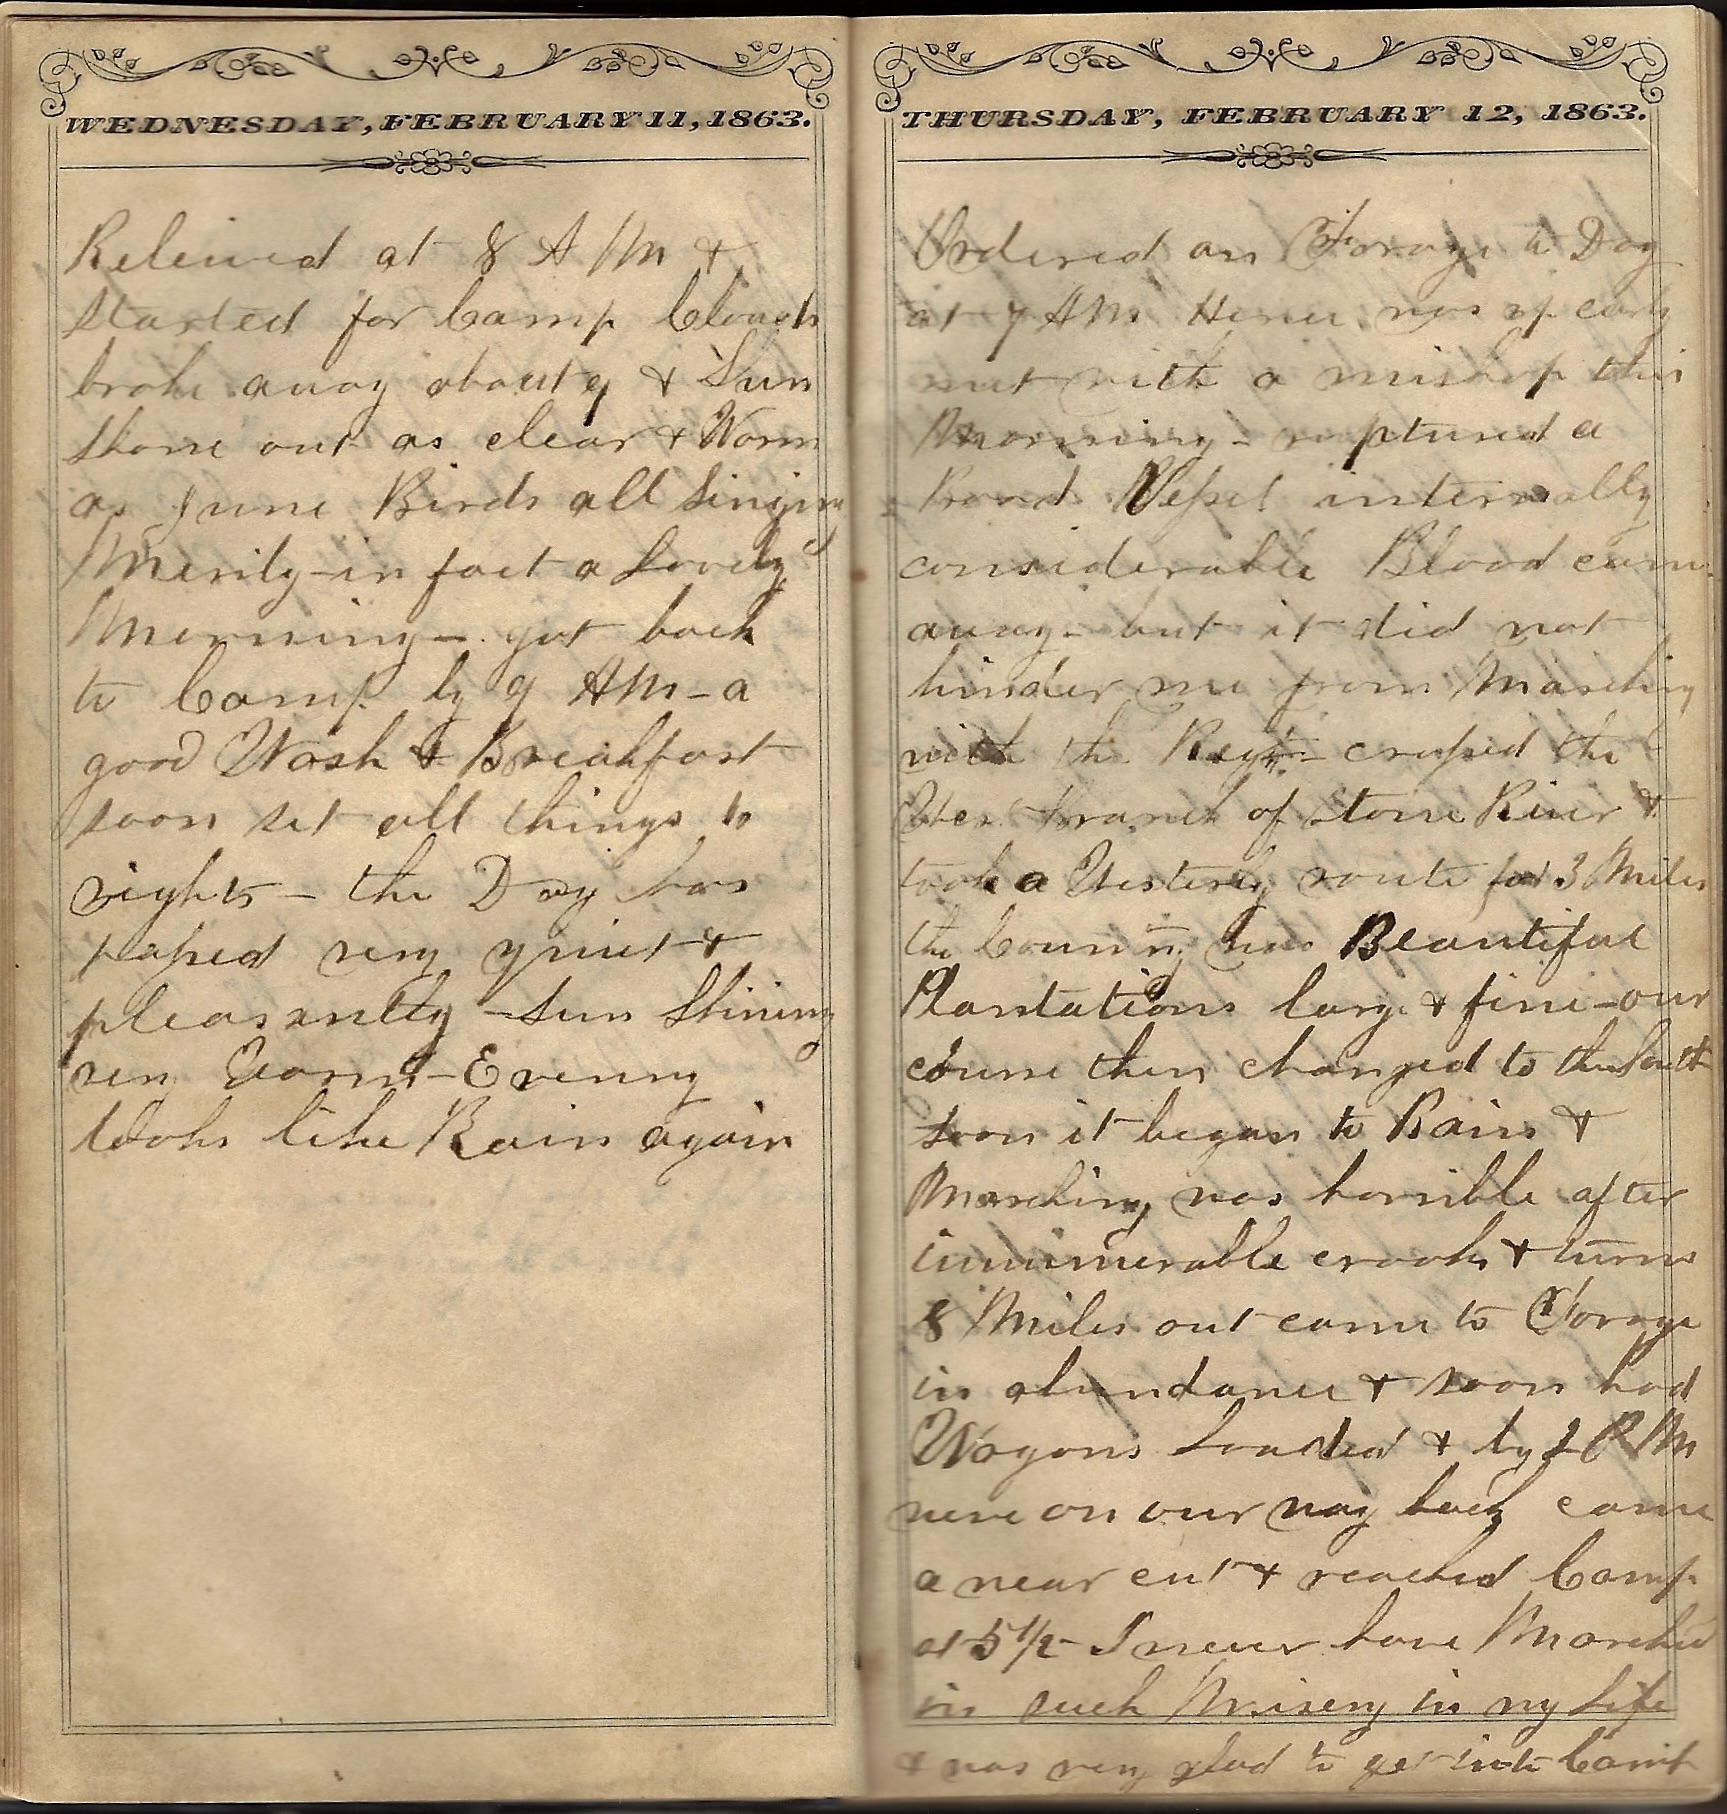 WEDNESDAY, FEBRUARY 11, 1863.
Releived at 8 A M &
started for Camp Clouds
broke away about 9 & Sun
Shone out as clear & Warm
as June Birds all Singing
Merily - in fact a Lovely
Morning - got back
to Camp by 9 AM - a
good Wash & Breakfast
soon set all things to
rights - the Day has
passed very quiet &
pleasantly - Sun Shining
very Warm - Evening
looks like Rain again
THURSDAY, FEBRUARY 12, 1863.
Ordered on Forage to Day
at 7 AM Hence was up early
met with a mishap this
Morning - ruptured a
Vessel internally
considerable Blood came
away - but it did not
hinder me from Marching
with the Regt - crossed the
West Branch of Stone River &
took a Westerly route for 3 Miles
the Country was Beautiful
Plantations large & fine - our
course then changed to the South
soon it began to Rain &
Marching was horrible after
innumerable crooks & turns
8 Miles out came to Forage
in abundance & soon had
Wagons Loaded & by 2 P M
were on our way back came
a near cut & reached Camp
at 5 1/2 - I never have Marched
in such Misery in my Life
& was very glad to get into Camp